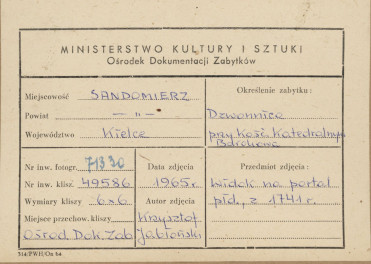 MINISTERSTWO KULTURY I SZTUKI
Ośrodek Dokumentacji Zabytków
Miejscowość SANDOMIERZ
Powiat — „ —
Województwo Kielce
Określenie zabytku:
Dzwonnica
przy kość. Katedralnym
Barokowa
Nr inw. fotogr. 71330
Nr inw. klisz. 49586
Wymiary kliszy 6x6
Miejsce przechow. kliszy
Ośrod. Dok. Zab
Data zdjęcia
1965 r.
Autor zdjęcia
Krzysztof
Jabłoński
Przedmiot zdjęcia:
Widok na portal
płd., z 1741 r.